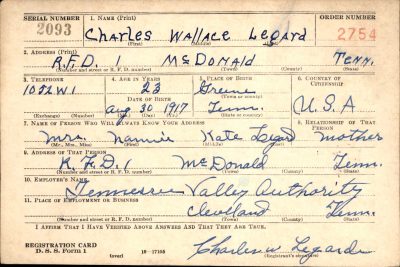 SERIAL NUMBER 1. NAME (Print) ORDER NUMBER
2093 Charles Wallace Legard 2754
(First) (Middle) (Last)
2. ADDRESS (Print)
R.F.D. 1 McDonald Tenn.
(Number and street or R. F. D. number) (Town) (County) (State)
3. TELEPHONE 4. AGE IN YEARS 5. PLACE OF BIRTH 6. COUNTRY OF CITIZENSHIP
1052W1 23 Greene
DATE OF BIRTH (Town or county)
Aug 30 1917 Tenn. U.S.A
(Exchange) (Number) (Mo.) (Day) (Yr.) (State or country)
7. NAME OF PERSON WHO WILL ALWAYS KNOW YOUR ADDRESS 8. RELATIONSHIP OF THAT PERSON
Mrs. Nannie Kate Legard mother
(Mr., Mrs., Miss) (First) (Middle) (Last)
9. ADDRESS OF THAT PERSON
R.F.D. 1 McDonald Tenn.
(Number and street or R. F. D. number) (Town) (County) (State)
10. EMPLOYER'S NAME
Tennessee Valley Authority
11. PLACE OF EMPLOYMENT OR BUSINESS
Cleveland Tenn.
(Number and street or R. F. D. number) (Town) (County) (State)
I AFFIRM THAT I HAVE VERIFIED ABOVE ANSWERS AND THAT THEY ARE TRUE.
REGISTRATION CARD
D. S. S. Form 1 (over) Charles W Legard